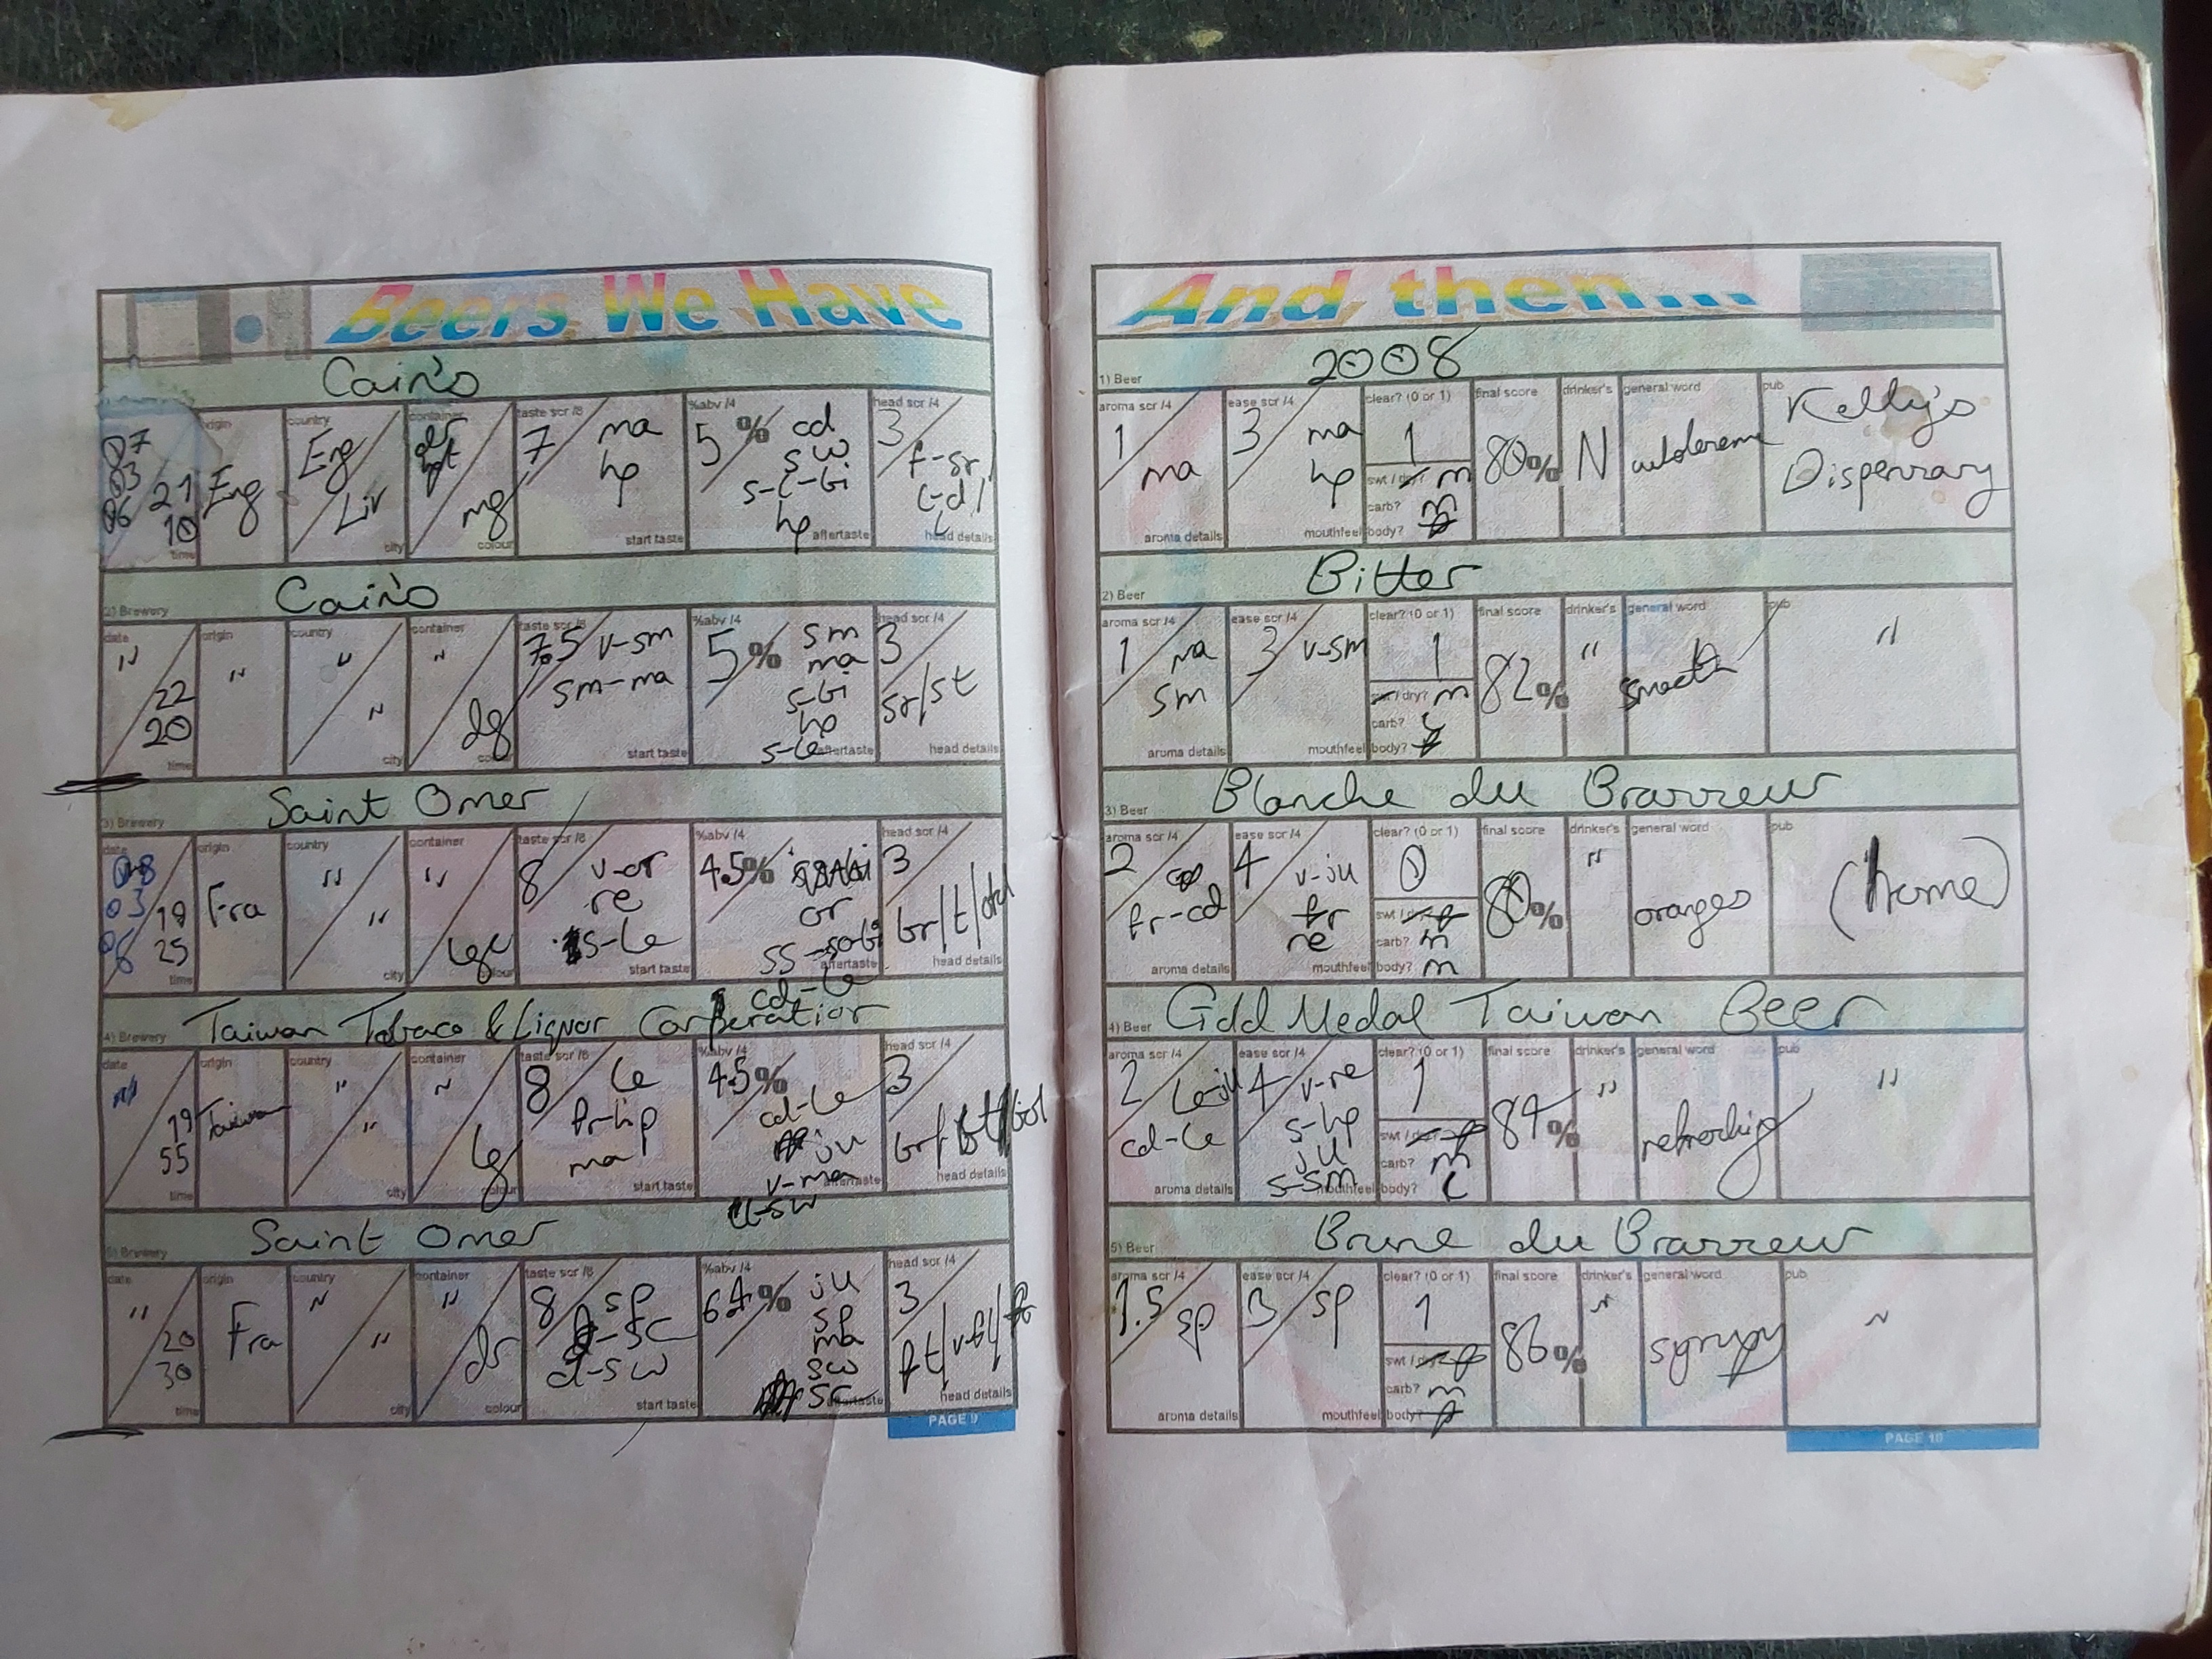 Beers We Have
Cain's
07
03
06
21
10
time
origin
Eng
country
Eng
Liv
city
container
mg
colour
taste scr /8
7
ma
hp
start taste
%abv /4
5 %
cd
sw
s-l-bi
hp
aftertaste
head scr /4
3
head details
2) Brewery
Cain's
date
"
22
20
time
origin
"
country
"
"
city
container
"
dg
colour
taste scr /8
7.5
v-sm
sm-ma
start taste
%abv /4
5 %
sm
ma
s-bi
hp
s-le
aftertaste
head scr /4
3
sr/st
head details
3) Brewery
Saint Omer
date
08
03
06
19
25
time
origin
Fra
country
"
"
city
container
"
colour
taste scr /8
8
v-or
re
s-le
start taste
%abv /4
4.5 %
or
cd-le
aftertaste
head scr /4
3
head details
4) Brewery
Taiwan Tobaco & Liquor Corperation
date
"
19
55
time
origin
Taiwan
country
"
"
city
container
"
lg
colour
taste scr /8
8
le
fr-hp
ma
start taste
%abv /4
4.5 %
cd-le
ju
v-ma
aftertaste
head scr /4
3
head details
5) Brewery
Saint Omer
date
"
20
30
time
origin
Fra
country
"
"
city
container
"
dr
colour
taste scr /8
8
sp
d-sw
start taste
%abv /4
6.4 %
ju
sp
ma
sw
sc
aftertaste
head scr /4
3
head details
PAGE 9
And then...
1) Beer
2008
aroma scr /4
1
ma
aroma details
ease scr /4
3
ma
hp
mouthfeel
clear? (0 or 1)
1
swt / dry? m
carb? m
body?
final score
80%
drinker's
N
general word
pub
Kelly's
Dispensary
2) Beer
Bitter
aroma scr /4
1
ma
sm
aroma details
ease scr /4
3
v-sm
mouthfeel
clear? (0 or 1)
1
swt / dry? m
carb?
body?
final score
82%
drinker's
"
general word
smooth
pub
"
3) Beer
Blanche du Brasseur
aroma scr /4
2
fr-cd
aroma details
ease scr /4
4
v-ju
fr
re
mouthfeel
clear? (0 or 1)
0
swt /
carb? m
body? m
final score
80%
drinker's
"
general word
oranges
pub
(home)
4) Beer
Gold Medal Taiwan Beer
aroma scr /4
2
le-ju
cd-le
aroma details
ease scr /4
4
v-re
s-hp
ju
s-sm
mouthfeel
clear? (0 or 1)
1
swt /
carb? m
body? l
final score
84%
drinker's
"
general word
refreshing
pub
"
5) Beer
Brune du Brasseur
aroma scr /4
1.5
sp
aroma details
ease scr /4
3
sp
mouthfeel
clear? (0 or 1)
1
swt /
carb? m
body?
final score
86%
drinker's
"
general word
syrupy
pub
"
PAGE 10